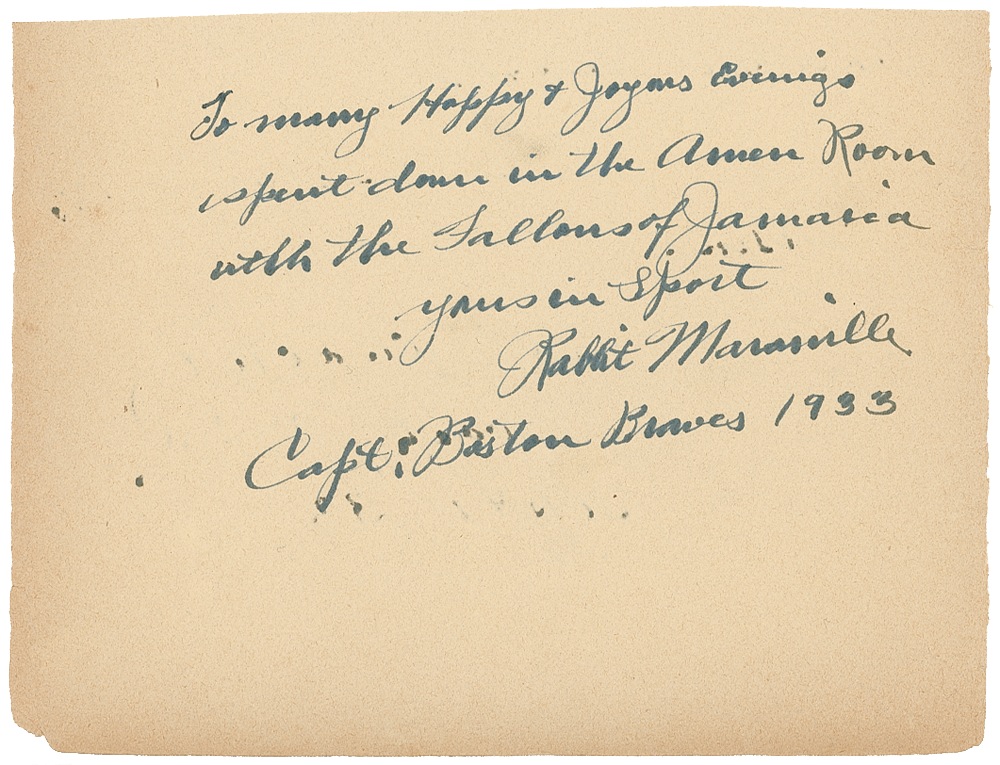 To many Happy + Joyous Evenings
spent down in the Amen Room
with the Fallons of Jamaica
yours in Sport
Rabbit Maranville
Capt. Boston Braves 1933